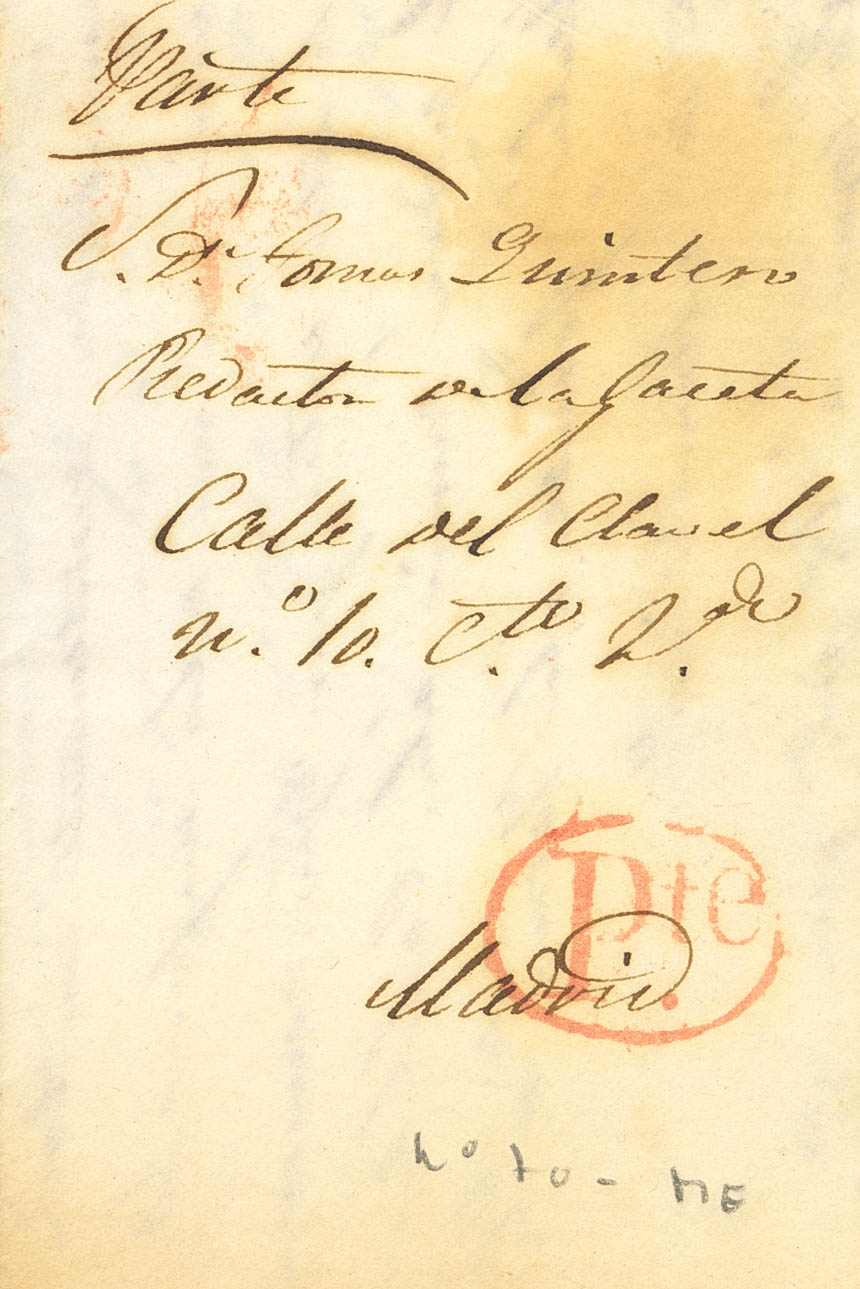 Parte
S. Dn. Tomas Quintero
Redactor de la Gaceta
Calle del Clavel
n.º 10. C.to 2.do
Pte
Madrid.
nº 10 -